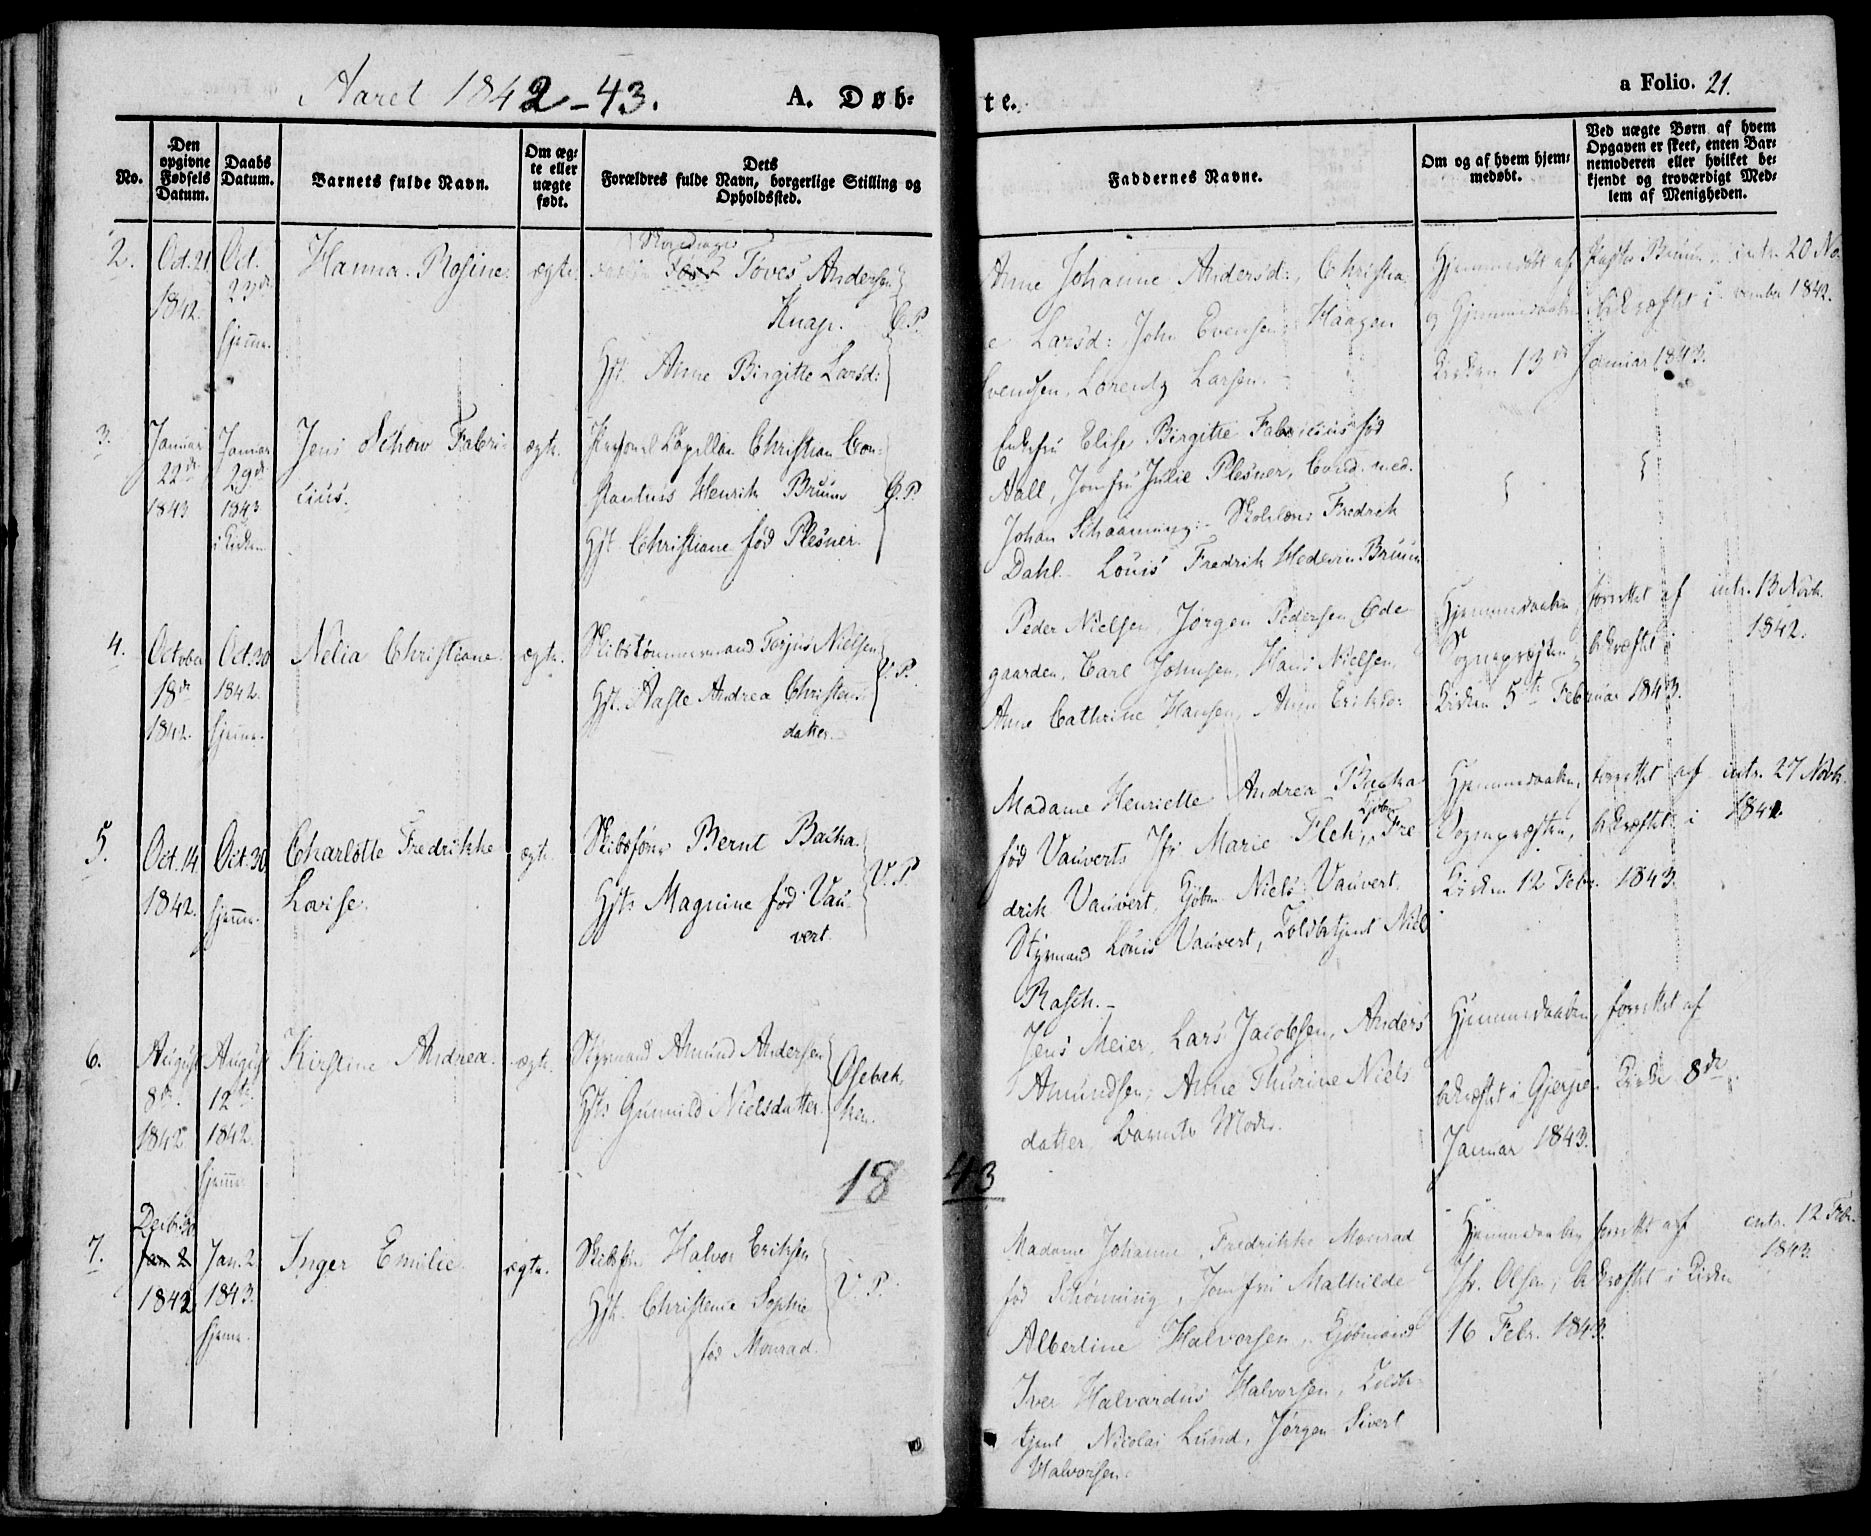 Aaret 1842-43.
A. Døb:
te.
a Folio. 21.
No.
Den
opgivne
Fødsels
Datum.
Daabs
Datum.
Barnets fulde Navn.
Om æg-
te eller
uægte
født.
Dets
Forældres fulde Navn, borgerlige Stilling og
Opholdssted.
Faddernes Navne.
Om og af hvem hjem-
medøbt.
Ved uægte Børn af hvem
Opgaven er skeet, enten Bar-
nemoderen eller hvilket be-
kjendt og troværdigt Med-
lem af Menigheden.
2.
Oct. 21
1842.
Oct.
23de
hjemme.
Hanna Rosine.
ægte
Tøves Andersen
Knap.
Hst. Anne Birgitte Larsd:
Ø.P.
Anne Johanne Andersd:, Christia
e Larsd: John Evensen, Haagen
Svendsen, Lorentz Larsen.
Hjemmedøbt af Pastor Bruun, intr. 20 No-
vember 1842.
Hjemmedaaben bekræftet i
Kirken 13de Januar 1843.
3.
Januar
22de
1843
Januar
29de
1843
i Kirken
Jens Schow Fabri-
cius.
ægte.
Personel Capellan Christian Con-
stantius Henrik Bruun
Hst. Christiane fød Plesner.
Ø.P.
Enkefru Elise Birgitte Fabricius fød
Aall, Jomfru Julie Plesner, Cand. med.
Johan Schaanning. Skolelærer Fredrik
Dahl. Louis Fredrik Hedevin Bruun
4.
October
18de
1842.
Oct. 30
1842.
hjemme.
Nelia Christiane.
ægte.
Skibstømmermand Torjus Nielsen
Hst. Aaste Andrea Christens-
datter.
V.P.
Peder Nielsen, Jørgen Pedersen Øde-
gaarden, Carl Johnsen, Hans Nielsen,
Anne Cathrine Hansen, Anne Eriksd:
Hjemmedaaben, forrettet af
Sognepræsten, bekræftet i
Kirken 5te Februar 1843.
intr. 13 Novb.
1842.
5.
Oct. 14
1842.
Oct. 30
hjemme.
Charlotte Fredrikke
Lovise.
ægte
Skibsfører Bernt Backa.
Hst. Magnine fød Vau-
vert.
V.P.
Madame Henriette Andrea Backa
fød Vauverts Jfr Marie Flek, Fre
drik Vauvert, Kjøbm Niels Vauvert,
Styrmand Louis Vauvert, Toldbetjent Niels
Rasch.
Hjemmedaaben, forrettet af
Sognepræsten, bekræftet i
Kirken 12 Febr. 1843.
intr. 27 Novb.
1842
6.
August
8de
1842
August
12te
1842.
hjemme
Kirstine Andrea.
ægte.
Styrmand Amund Andersen
Hst. Gunnild Nielsdatter.
Osebak-
ken.
Jens Meier, Lars Jacobsen, Anders
Amundsen, Anne Thurine Niels
datter, Barnets Moder.
Hjemmedaaben, forrettet af
bekræftet i Gjerpen Kirke 8de
Januar 1843.
1843
7.
Decbr. 30
Jan 2
1842
Jan. 2
1843.
hjemme.
Inger Emilie.
ægte.
Skibsfører Halvor Eriksen
Hst. Christence Sophie
fød Monrad.
V.P.
Madame Johanne Fredrikke Monrad
fød Schønning, Jomfru Mathilde
Albertine Halvorsen, Kjøbmand
Iver Halvardus Halvorsen, Toldbe-
tjent Nicolai Lund, Jørgen Sivert
Halvorsen.
Hjemmedaaben forrettet af
Hr. Olsen, bekræftet i Kirken
16 Febr. 1843.
intr. 12 Febr.
1843